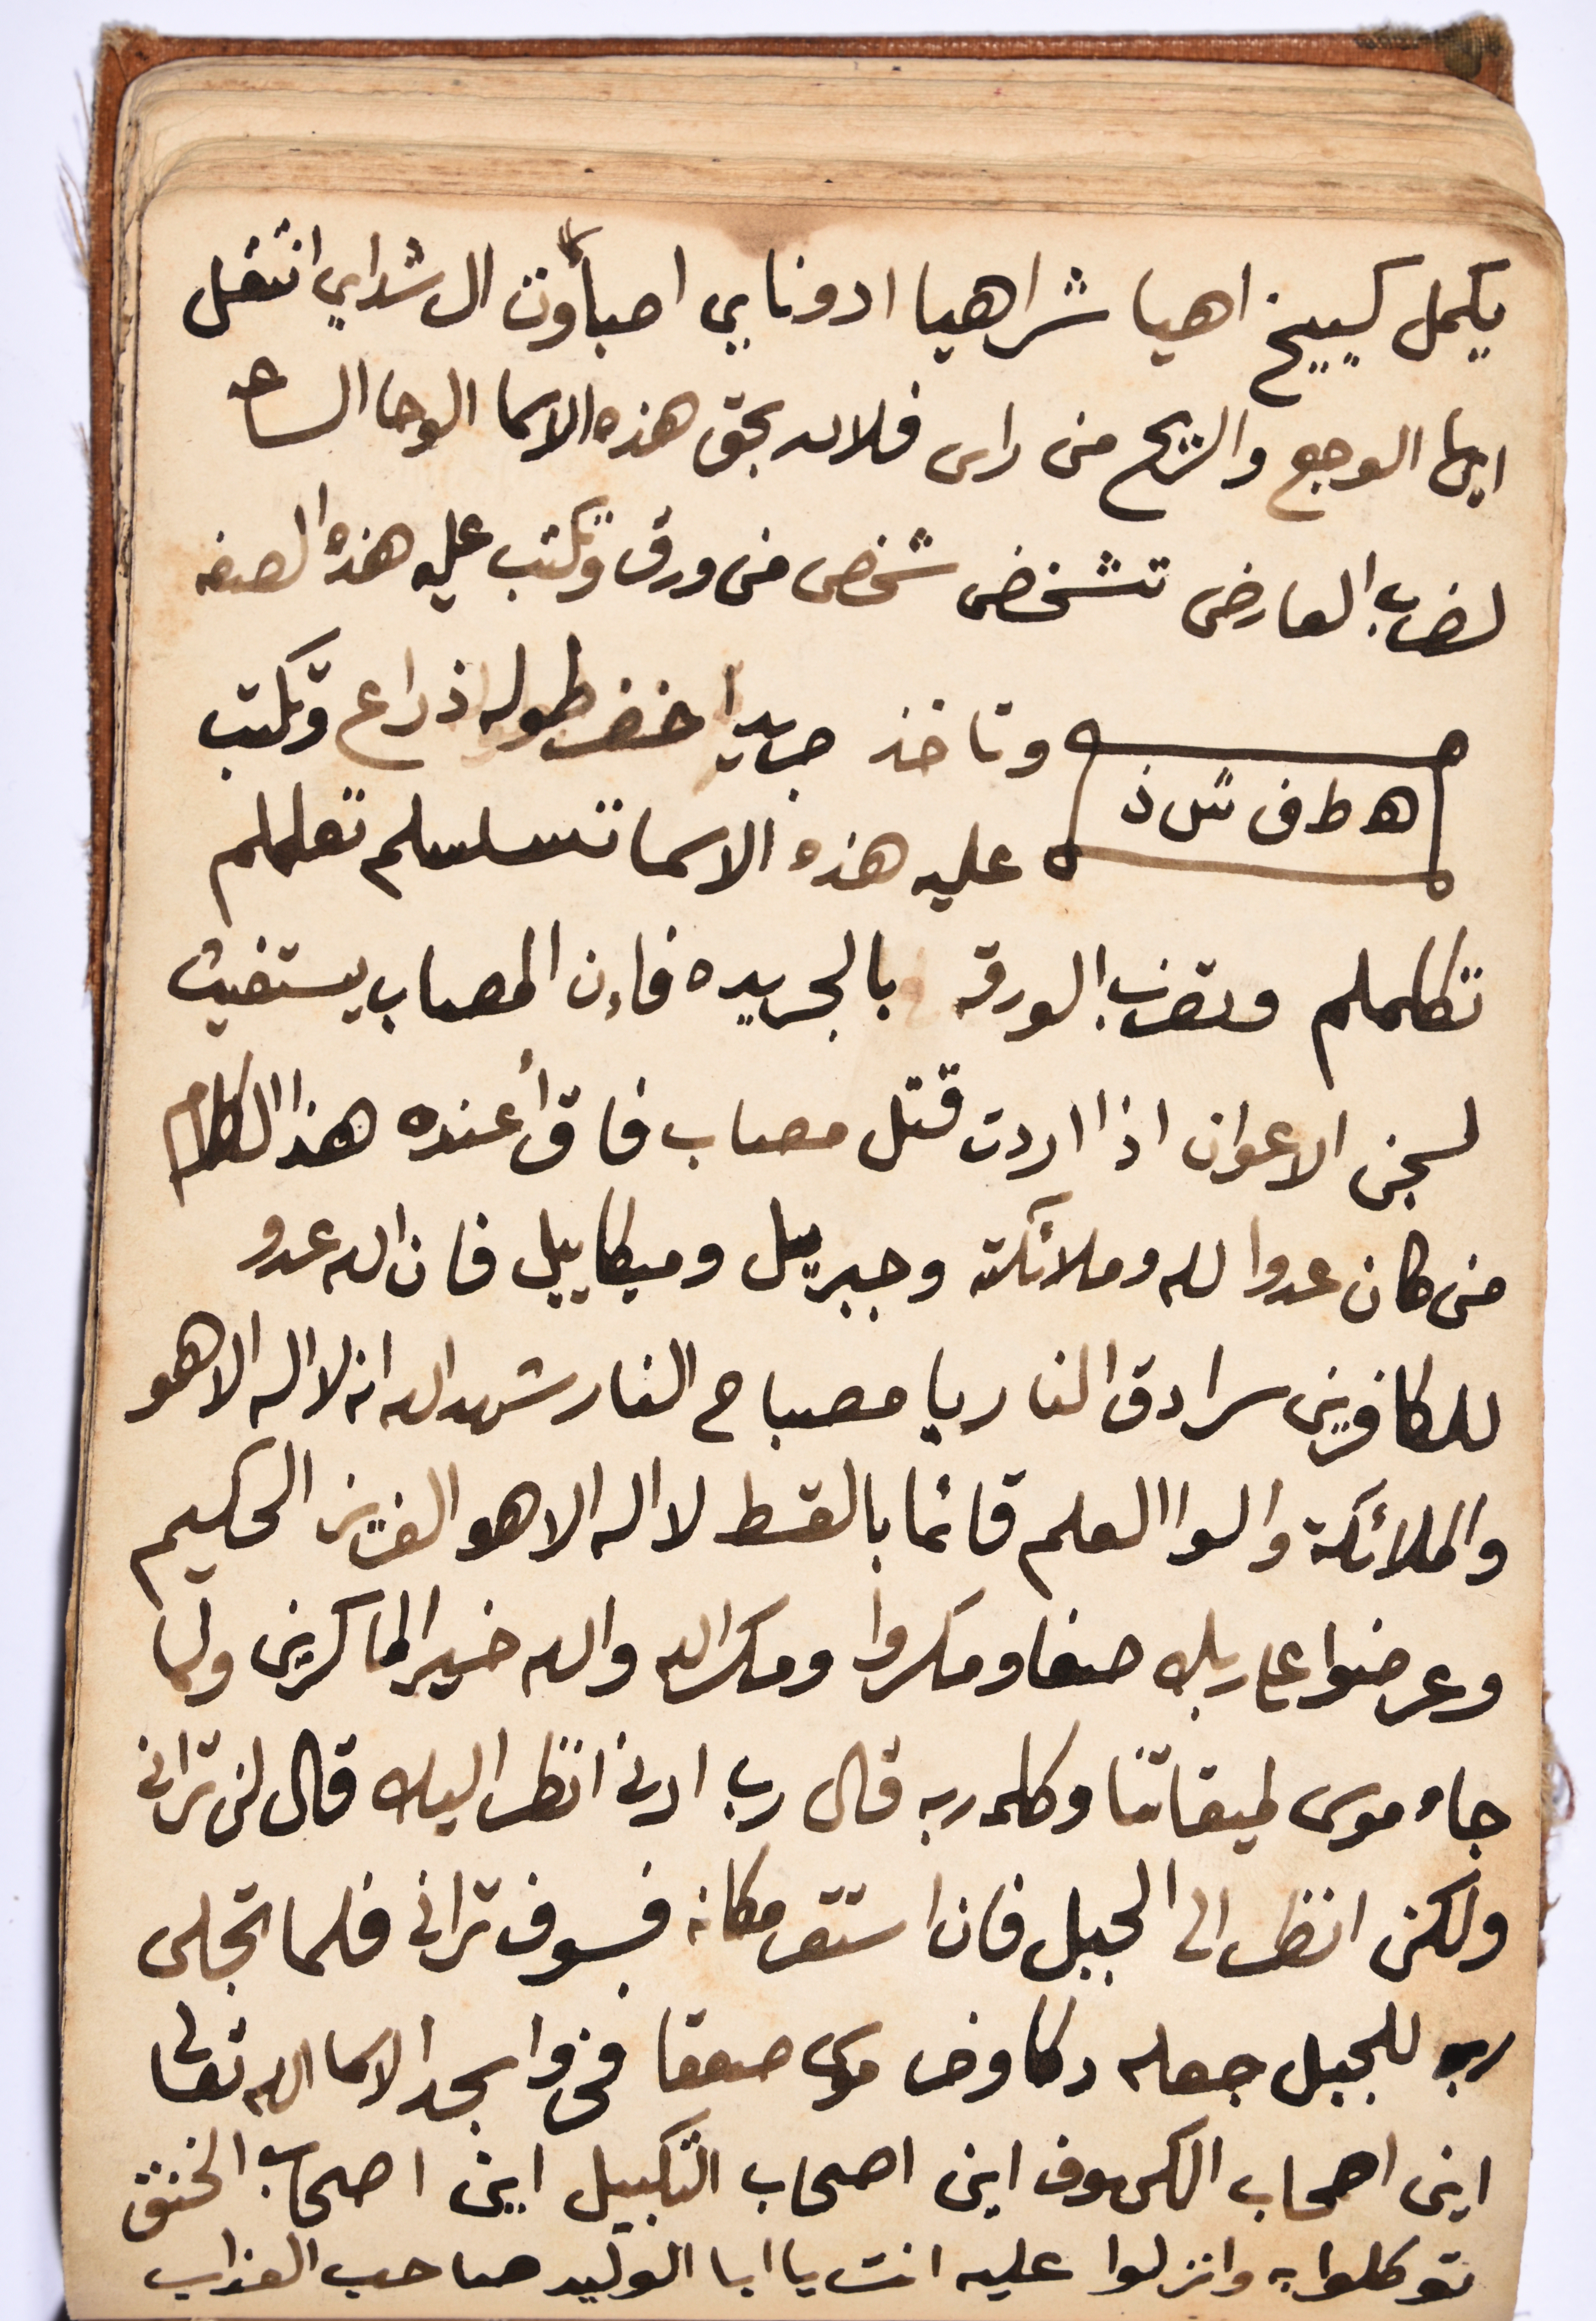 يكمل كسييخ اهيا شراهيا ادوناي اصبأوت ال شداي انتقل
ايها الوجع والريح من راس فلان بحق هذه الاسما الوحا الساعه
لضرب العارض تشخص شخص من ورق وتكتب عليه هذه الصفه
وتاخذ جريدا اخضر طوله ذراع وتكتب
ه ط ف ش ل ذ
عليه هذه الاسما تسلسلم تعلملم
تكلملم وتضرب الورقه بالجريده فاءن المصاب يستغيث
لسجن الاعوان اذا اردت قتل مصاب فاقرأ عنده هذا الكلام
من كان عدوا لله وملائكته وجبريل وميكاييل فان الله عدو
للكافرين سرادق النار يا مصباح النار شهد الله انه لا اله الا هو
والملائكة والوا العلم قائما بالقسط لا اله الا هو العزيز الحكيم
وعرضوا على ربك صفا ومكروا ومكر الله والله خير الماكرين ولما
جاء موسى لميقاتنا وكلمه ربه قال رب ارني انظر اليك قال لن تراني
ولكن انظر الى الجبل فان استقر مكانه فسوف تراني فلما تجلى
ربه للجبل جعله دكا وخر موسى صعقا فخروا سجدا لاسما الله تعالى
اين اصحاب الكسوف اين اصحاب التكبيل اين اصحاب الخنق
توكلوا به وانزلوا عليه انت يا ابا الوليد صاحب العذاب